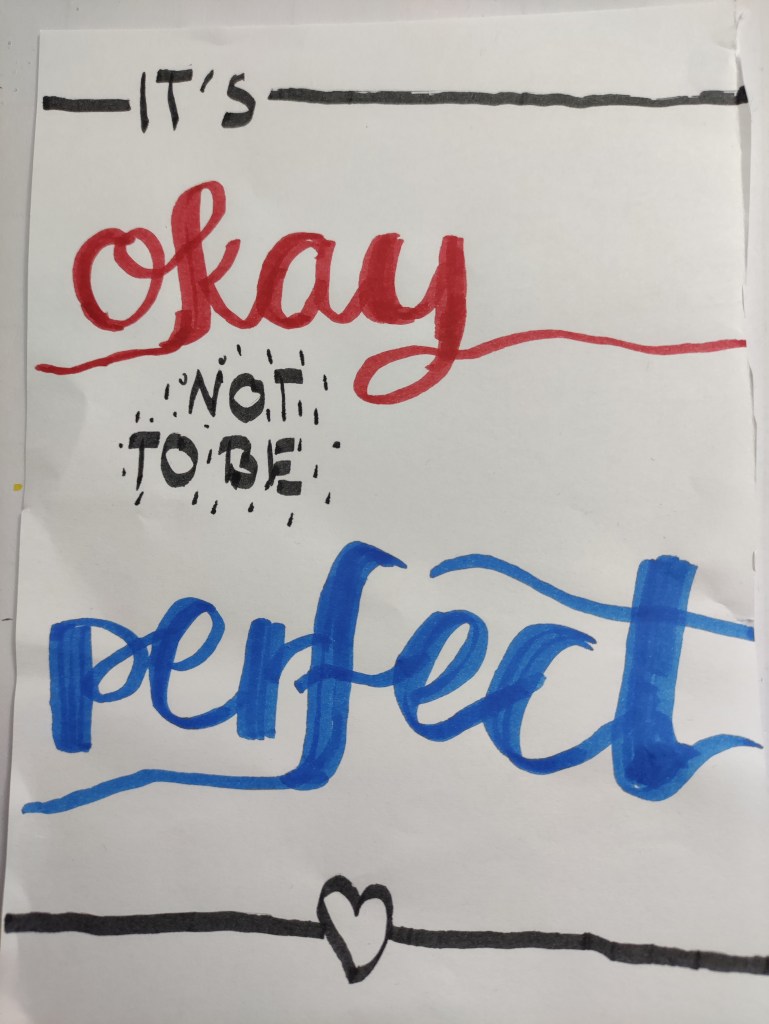 IT'S
okay
NOT
TO BE
perfect